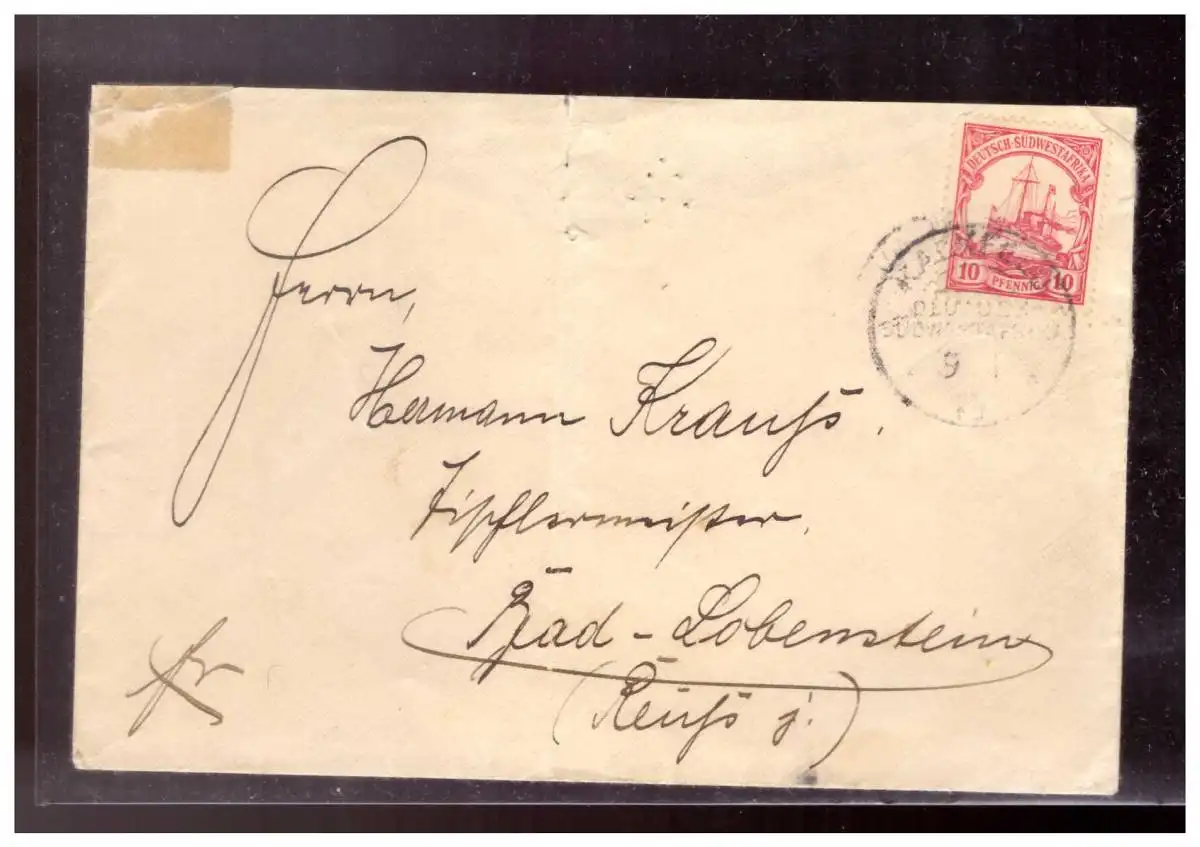 DEUTSCH-SÜDWESTAFRIKA
10 PFENNIG 10
SÜDWESTAFRIKA
9
Herrn,
Hermann Krauß.
Tischlermeister.
Bad-Lobenstein
(Reuß j.)
fr